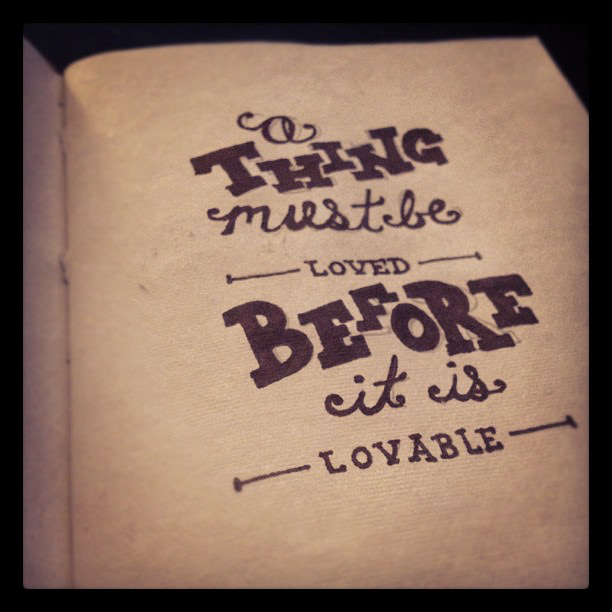 a
THING
must be
LOVED
BEFORE
it is
LOVABLE